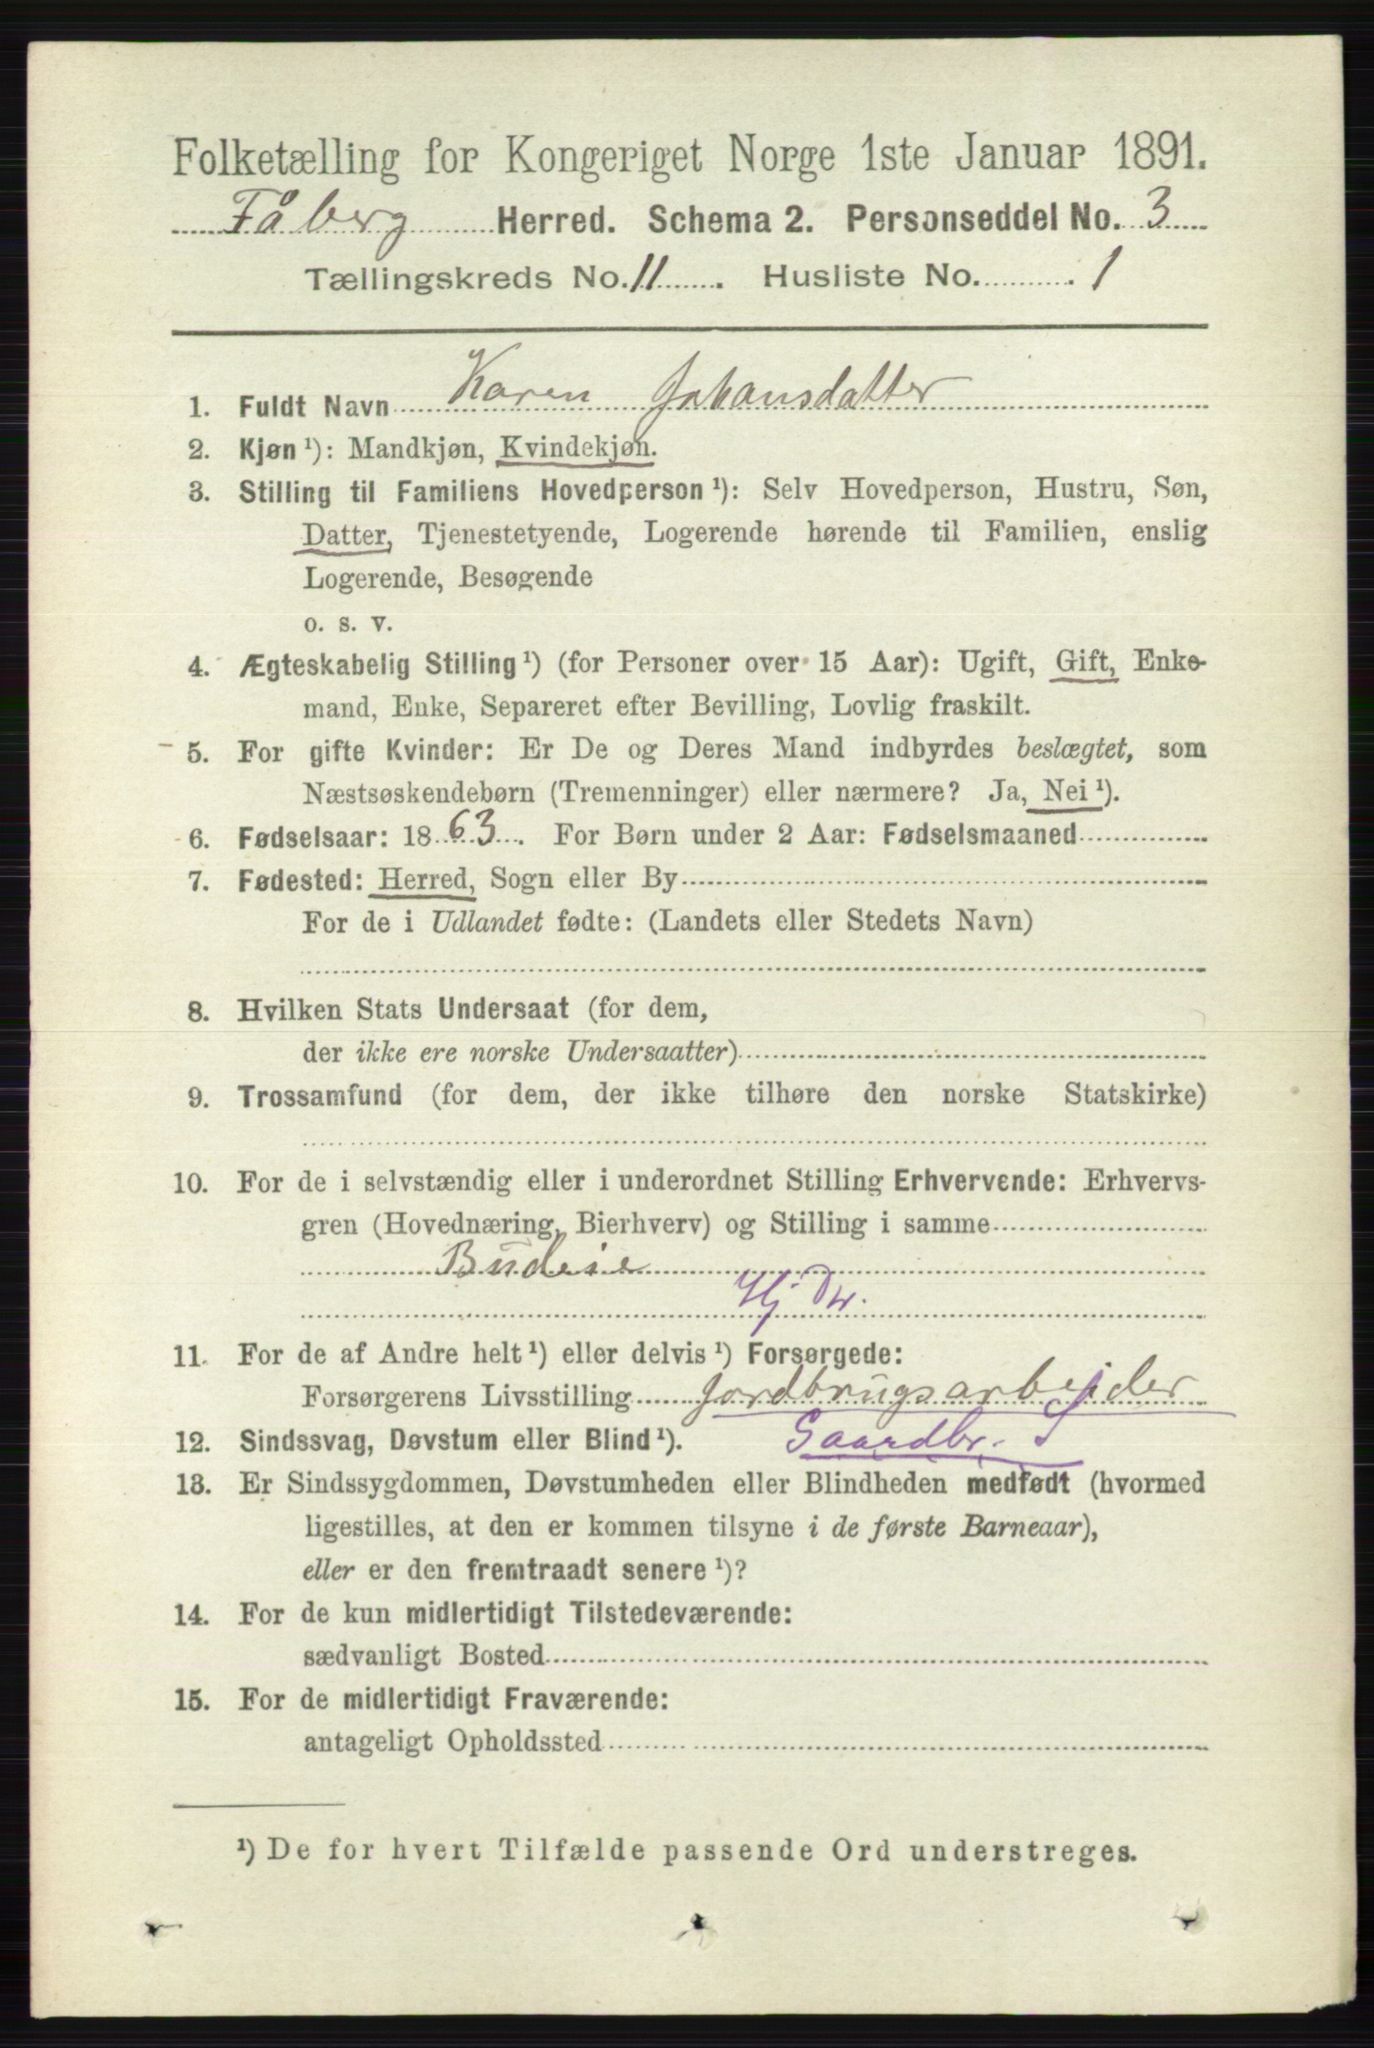 Folketælling for Kongeriget Norge 1ste Januar 1891.
Fåberg Herred. Schema 2. Personseddel No. 3
Tællingskreds No. 11. Husliste No. 1
1. Fuldt Navn Karen Johansdatter
2. Kjøn ¹): Mandkjøn, Kvindekjøn.
3. Stilling til Familiens Hovedperson ¹): Selv Hovedperson, Hustru, Søn,
Datter, Tjenestetyende, Logerende hørende til Familien, enslig
Logerende, Besøgende
o. s. v.
4. Ægteskabelig Stilling ¹) (for Personer over 15 Aar): Ugift, Gift, Enke-
mand, Enke, Separeret efter Bevilling, Lovlig fraskilt.
5. For gifte Kvinder: Er De og Deres Mand indbyrdes beslægtet, som
Næstsøskendebørn (Tremenninger) eller nærmere? Ja, Nei ¹).
6. Fødselsaar: 1863. For Børn under 2 Aar: Fødselsmaaned
7. Fødested: Herred, Sogn eller By
For de i Udlandet fødte: (Landets eller Stedets Navn)
8. Hvilken Stats Undersaat (for dem,
der ikke ere norske Undersaatter)
9. Trossamfund (for dem, der ikke tilhøre den norske Statskirke)
10. For de i selvstændig eller i underordnet Stilling Erhvervende: Erhvervs-
gren (Hovednæring, Bierhverv) og Stilling i samme
Budeie
11. For de af Andre helt ¹) eller delvis ¹) Forsørgede:
Forsørgerens Livsstilling Jordbrugsarbeider
12. Sindssvag, Døvstum eller Blind ¹). Gaardbr. S
13. Er Sindssygdommen, Døvstumheden eller Blindheden medfødt (hvormed
ligestilles, at den er kommen tilsyne i de første Barneaar),
eller er den fremtraadt senere ¹)?
14. For de kun midlertidigt Tilstedeværende:
sædvanligt Bosted
15. For de midlertidigt Fraværende:
antageligt Opholdssted
¹) De for hvert Tilfælde passende Ord understreges.